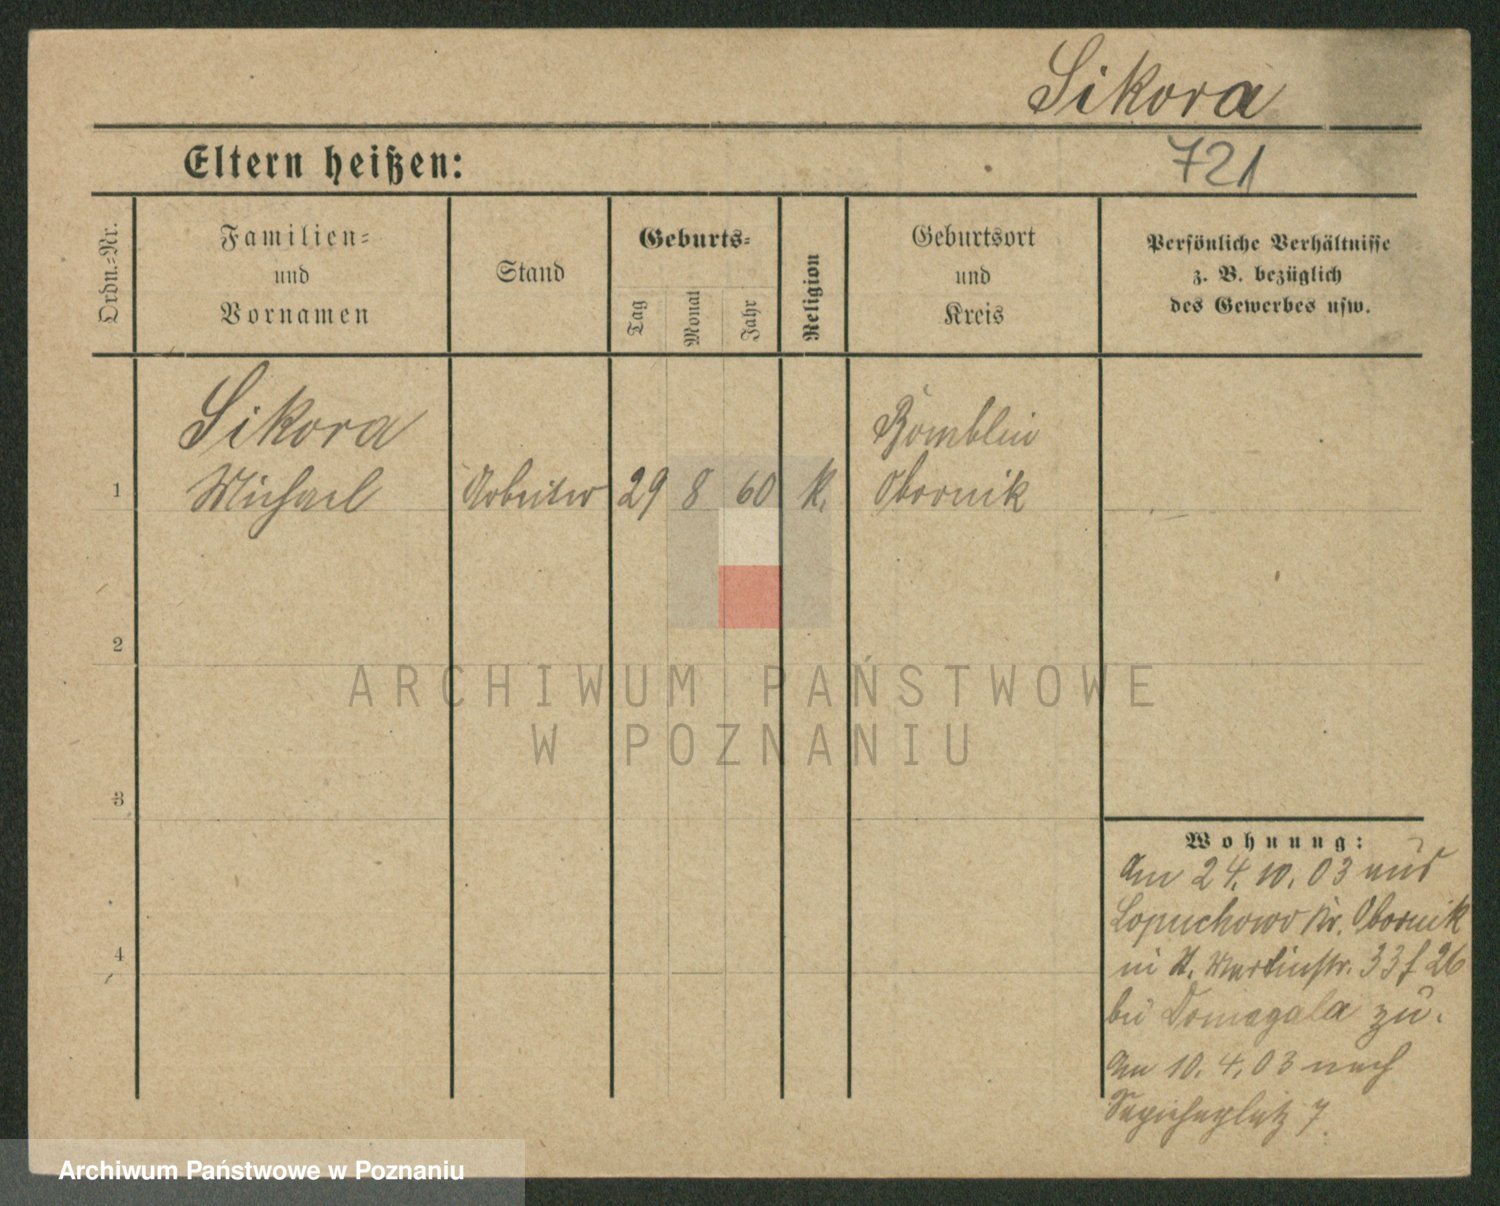 Sikora
Eltern heißen:
721
Ordn.=Nr.
Familien=
und
Vornamen
Stand
Geburts=
Tag
Monat
Jahr
Religion
Geburtsort
und
Kreis
Persönliche Verhältnisse
z. B. bezüglich
des Gewerbes usw.
Sikora
Michael
1
Arbeiter
29
8
60
K.
Bomblin
Obornik
2
ARCHIWUM PAŃSTWOWE
W POZNANIU
3
4
Wohnung:
Am 24. 10. 03 aus
Lopuchowo Kr. Obornik
in St. Martinstr. 33 f 26
bei Domagala zu.
Am 10. 4. 03 nach
Sapiehaplatz 7
Archiwum Państwowe w Poznaniu